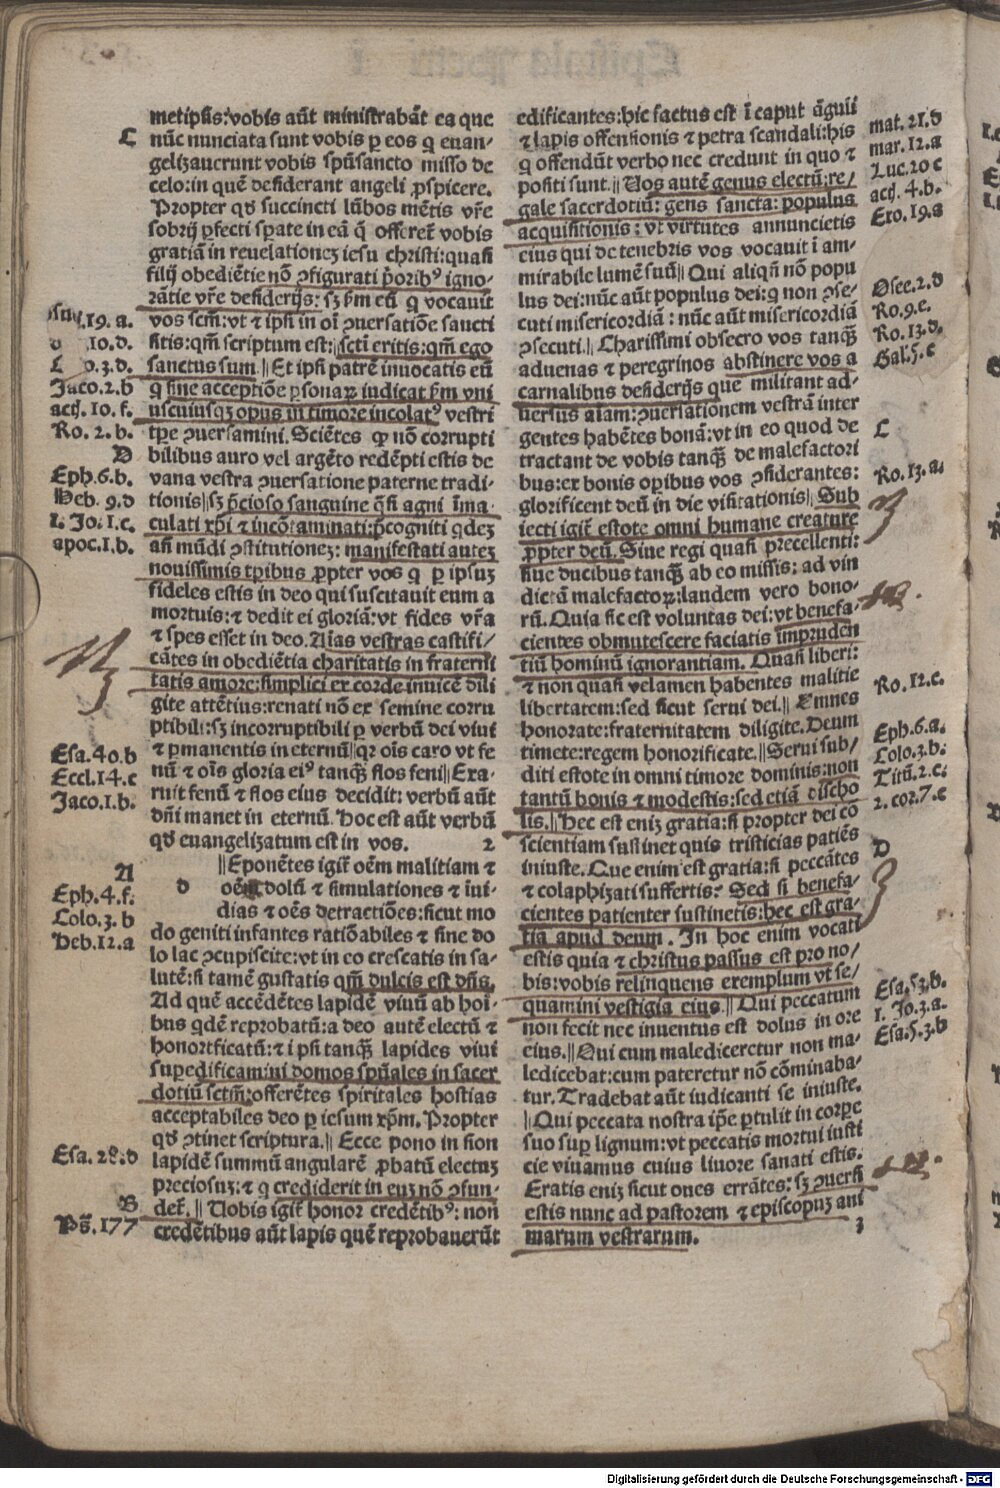 metipsis:vobis aūt ministrabāt ea que
C
nūc nunciata sunt vobis ꝑ eos q̇ euan-
gelizauerunt vobis spūsancto misso de
celo:in quē desiderant angeli ꝓspicere.
Propter qḋ succincti lūbos mētis vr̄e
sobrij ꝑfecti sꝑate in eā q̄ offeret̄ vobis
gratiā in reuelationeȝ iesu christi:quasi
filij obediētie nō ꝯfigurati p̄orib⁹ igno-
rātie vr̄e desiderijs: sȝ ẜm eū q̇ vocauit
vos scm̄:vt ⁊ ipsi in oī ꝯuersatiōe sancti
sitis:qm̄ scriptum est: scti eritis:qm̄ ego
sanctus sum.|| Et ipsi patrē inuocatis eū
q̇ sine acceptiōe ꝑsonaꝝ iudicat ẜm vni
uscuiusqȝ opus in timore incolat⁹ vestri
tꝑe ꝯuersamini. Sciētes ꝙ nō corrupti
bilibus auro vel argēto redēpti estis de
vana vestra ꝯuersatione paterne tradi-
tionis||sȝ p̄cioso sanguine q̄si agni īma-
culati xp̄i ⁊ incōtaminati:p̄cogniti q̇deȝ
an̄ mūdi ꝯstitutioneȝ: manifestati auteȝ
nouissimis tꝑibus ꝓpter vos q̇ ꝑ ipsuȝ
fideles estis in deo qui suscitauit eum a
mortuis:⁊ dedit ei gloriā:vt fides vr̄a
⁊ spes esset in deo. Aīas vestras castifi/
cātes in obediētia charitatis in fraterni
tatis amore:simplici ex corde inuicē dili
gite attētius:renati nō ex semine corru
ptibili:sȝ incorruptibili ꝑ verbū dei viui
⁊ ꝑmanentis in eternū||qꝛ oīs caro vt fe
nū ⁊ oīs gloria ei⁹ tanq̄ȝ flos feni|| Exa-
ruit fenū ⁊ flos eius decidit: verbū aūt
dn̄i manet in eternū. Hoc est aūt verbū
qḋ euangelizatum est in vos. 2
||Eponētes igit̄ oēm malitiam ⁊
D oēm dolū ⁊ simulationes ⁊ īui-
dias ⁊ oēs detractiōes:sicut mo
do geniti infantes ratiōabiles ⁊ sine do
lo lac ꝯcupiscite:vt in eo crescatis in sa-
lutē:si tamē gustatis qm̄ dulcis est dn̄s.
Ad quē accēdētes lapidē viuū ab hoī-
bus q̇dē reprobatū:a deo autē electū ⁊
honorificatū:⁊ ipsi tanq̄ȝ lapides viui
suꝑedificamini domos spūales in sacer
dotiū sctm̄:offerētes spiritales hostias
acceptabiles deo ꝑ iesum xp̄m. Propter
qḋ ꝯtinet scriptura.|| Ecce pono in sion
lapidē summū angularē ꝓbatū electuȝ
preciosuȝ:⁊ q̇ crediderit in euȝ nō ꝯfun-
det̄.|| Uobis igit̄ honor credētib⁹: non
credētibus aūt lapis quē reprobauerūt
19. a.
10.d.
3.d.
Jaco.2.b
act. 10. f.
Ro. 2. b.
D
Eph.6.b.
Heb. 9.d
1. Jo.1.c.
apoc.1.b.
Esa.40.b
Eccl.14.c
Jaco.1.b.
A
Eph.4.f.
Colo.3.b
Heb.12.a
Esa. 28.d
B
Ps̄.177
edificantes:hic factus est ī caput āguli
⁊ lapis offensionis ⁊ petra scandali:his
q̇ offendūt verbo nec credunt in quo ⁊
positi sunt.|| Uos autē genus electū:re/
gale sacerdotiū: gens sancta: populus
acquisitionis: vt virtutes annuncietis
eius qui de tenebris vos vocauit ī am-
mirabile lumē suū|| Qui aliqn̄ nō popu
lus dei:nūc aūt populus dei:q̇ non ꝯse-
cuti misericordiā: nūc aūt misericordiā
ꝯsecuti.|| Charissimi obsecro vos tanq̄ȝ
aduenas ⁊ peregrinos abstinere vos a
carnalibus desiderijs que militant ad-
uersus aīam:ꝯuersationem vestrā inter
gentes habētes bonā:vt in eo quod de
tractant de vobis tanq̄ȝ de malefactori
bus:ex bonis oꝑibus vos ꝯsiderantes:
glorificent deū in die visitationis|| Sub
iecti igit̄ estote omni humane creature
ꝓpter deū. Siue regi quasi precellenti:
siue ducibus tanq̄ȝ ab eo missis: ad vin
dictā malefactoꝝ:laudem vero bono-
rū. Quia sic est voluntas dei:vt benefa-
cientes obmutescere faciatis impruden
tiū hominū ignorantiam. Quasi liberi:
⁊ non quasi velamen habentes malitie
libertatem:sed sicut serui dei.|| Omnes
honorate:fraternitatem diligite. Deum
timete:regem honorificate.||Serui sub/
diti estote in omni timore dominis:non
tantū bonis ⁊ modestis:sed etiā discho
lis.||Hec est eniȝ gratia:si propter dei cō
scientiam sustinet quis tristicias patiēs
iniuste. Que enim est gratia:si peccātes
⁊ colaphizati suffertis? Sed si benefa-
cientes patienter sustinetis:hec est gra-
tia apud deum. In hoc enim vocati
estis quia ⁊ christus passus est pro no-
bis:vobis relinquens exemplum vt se/
quamini vestigia eius.|| Qui peccatum
non fecit nec inuentus est dolus in ore
eius.||Qui cum malediceretur non ma-
ledicebat:cum pateretur nō cōminaba-
tur. Tradebat aūt iudicanti se iniuste.
||Qui peccata nostra ip̄e ꝑtulit in corꝑe
suo suꝑ lignum:vt peccatis mortui iusti
cie viuamus cuius liuore sanati estis.
Eratis eniȝ sicut oues errātes: sȝ ꝯuersi
estis nunc ad pastorem ⁊ episcopuȝ ani
marum vestrarum. 3
mat. 21.d
mar.12.a
Luc.20 c
act. 4.b.
Exo.19.a
Osee.2.d
Ro.9.e.
Ro.13.d.
Gal.5.c
C
Ro.13.a.
Ro.12.c.
Eph.6.a.
Colo.3.b.
Titū.2.c.
2.cor.7.c
D
Esa.53.b.
1. Jo.3.a.
Esa.5.3.b
Digitalisierung gefördert durch die Deutsche Forschungsgemeinschaft - DFG